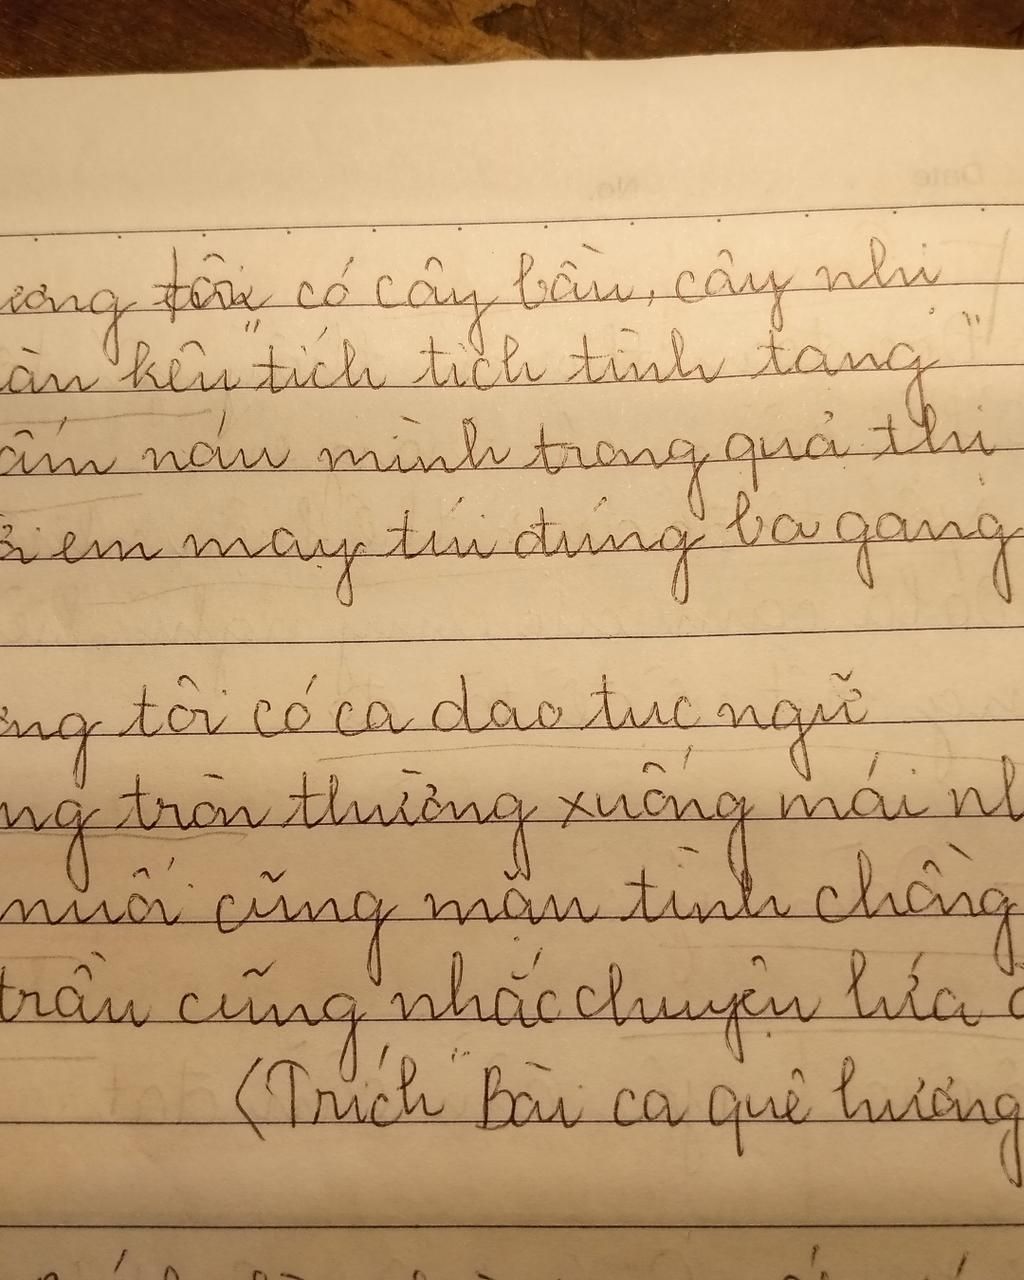 ương tôi có cây bầu, cây nhị
àn kêu "tích tịch tình tang"
ấm náu mình trong quả thị
em may túi đúng ba gang
ng tôi có ca dao tục ngữ
ng trăn thường xuống mái
muối cũng mặn tình chồng
trần cũng nhắc chuyện lúa
(Trích "Bài ca quê hương